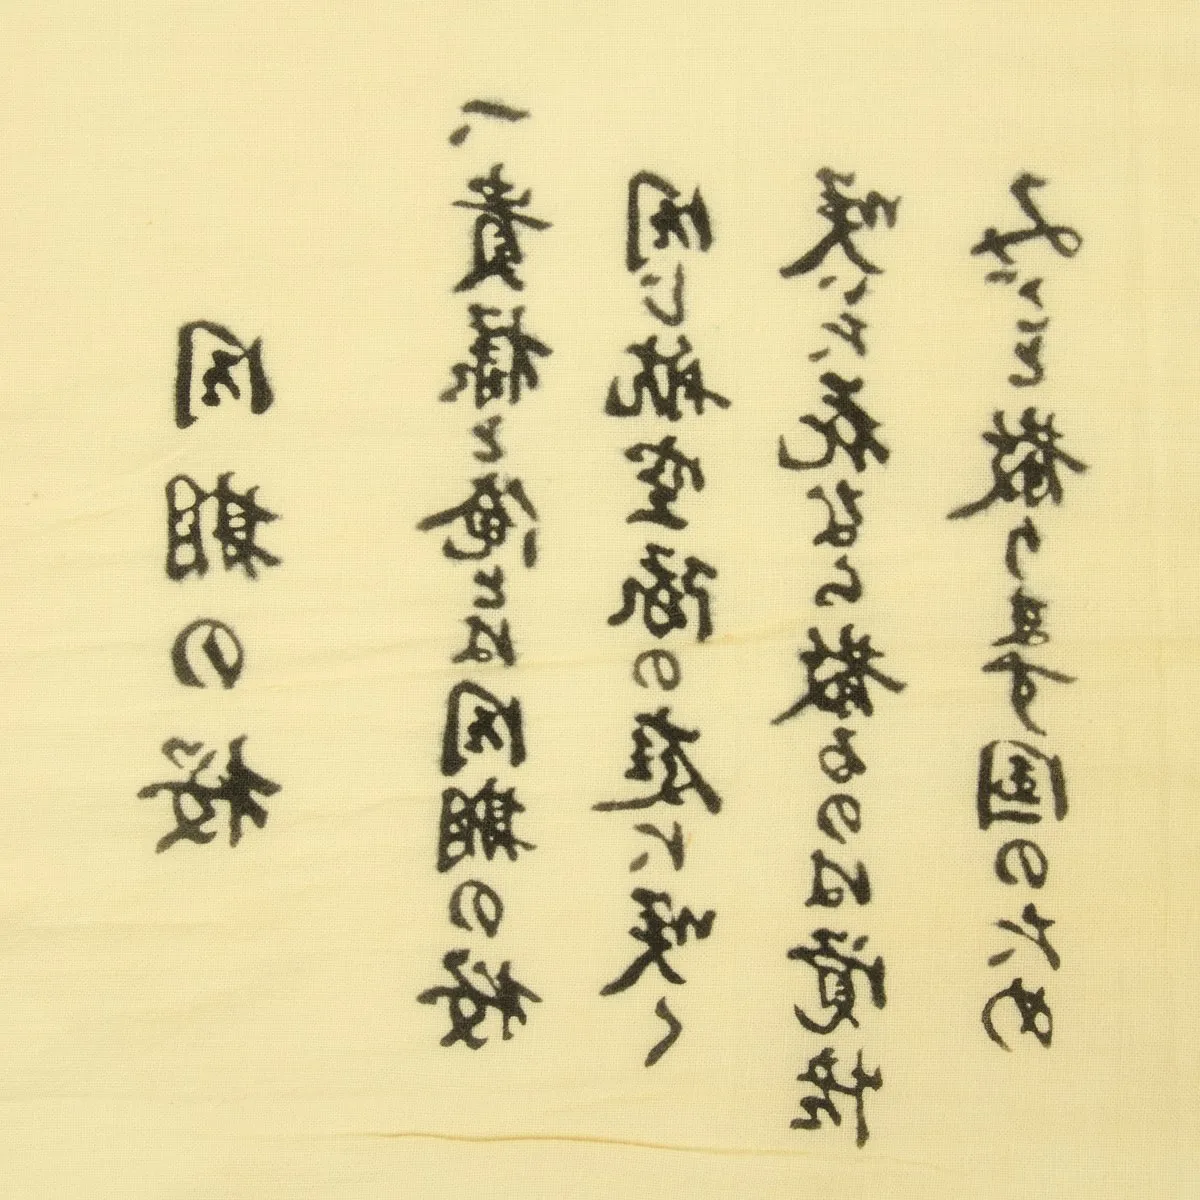 同期の桜
一、貴様と俺とは同期の桜
同じ航空隊の庭に咲く
咲いた花なら散るのは覚悟
みごと散ります国のため